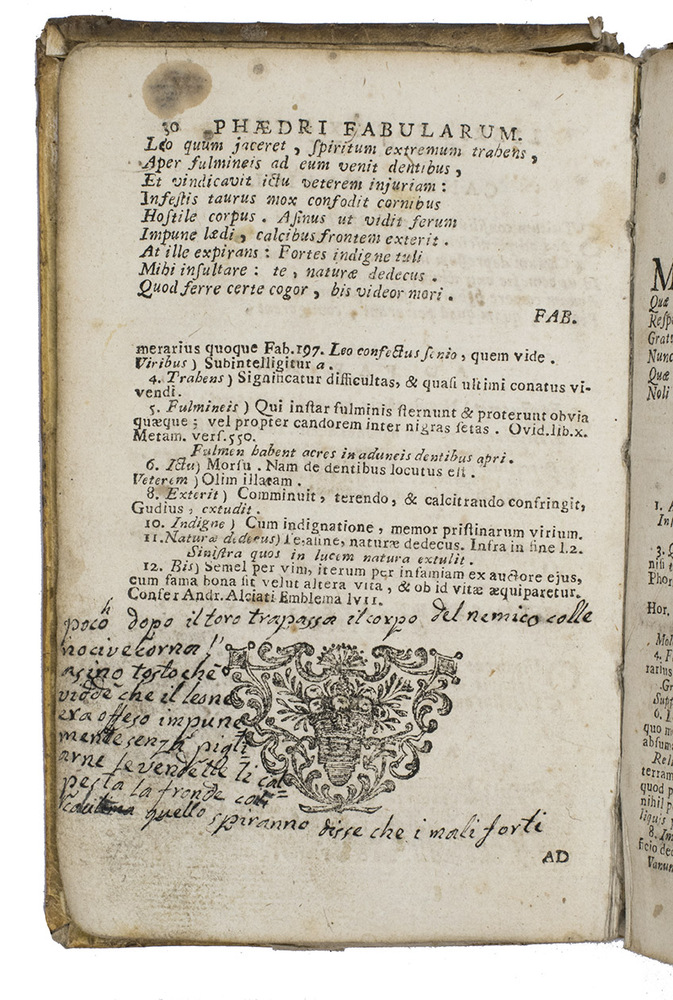 30 PHÆDRI FABULARUM.
Leo quum jaceret , ſpiritum extremum trahens ,
Aper fulmineis ad eum venit dentibus ,
Et vindicavit ictu veterem injuriam :
Infeſtis taurus mox confodit cornibus
Hoſtile corpus . Aſinus ut vidit ferum
Impune lædi , calcibus frontem exterit .
At ille expirans : Fortes indigne tuli
Mihi inſultare : te , naturæ dedecus .
Quod ferre certe cogor , bis videor mori .
FAB.
merarius quoque Fab.197. Leo confectus ſenio , quem vide .
Viribus ) Subintelligitur a .
4. Trahens ) Significatur difficultas, & quaſi ultimi conatus vi-
vendi .
5. Fulmineis ) Qui inſtar fulminis ſternunt & proterunt obvia
quæque ; vel propter candorem inter nigras ſetas . Ovid.lib.x.
Metam. verſ.550.
Fulmen habent acres in aduncis dentibus apri .
6. Ictu) Morſu . Nam de dentibus locutus eſt .
Veterem ) Olim illatam .
8. Exterit ) Comminuit, terendo, & calcitraudo confringit,
Gudius , extudit .
10. Indigne ) Cum indignatione, memor priſtinarum virium.
11. Naturæ dedecus) Te, aſine, naturæ dedecus. Infra in fine l.2.
Siniſtra quos in lucem natura extulit .
12. Bis) Semel per vim, iterum per infamiam ex auctore ejus,
cum fama bona ſit velut altera vita , & ob id vitæ æquiparetur.
Confer Andr. Alciati Emblema lvii.
poco dopo il toro trapassa il corpo del nemico colle
nocive corna l'
asino tosto che
vidde che il leone
era offeso impune
mente senza pigli
arne le vendette li cal
pesta la fronde
quello spiranno disse che i mali forti
AD
M
Quæ
Reſp
Gratt
Nunc
Quæ
Noli
1. A
3. Q
niſi t
Phor
Hor.
Mol
4. F
rarius
6. I
quo m
abſum
Rel
terram
quod p
nihil p
liquis
8. Im
ficio de
Vanum